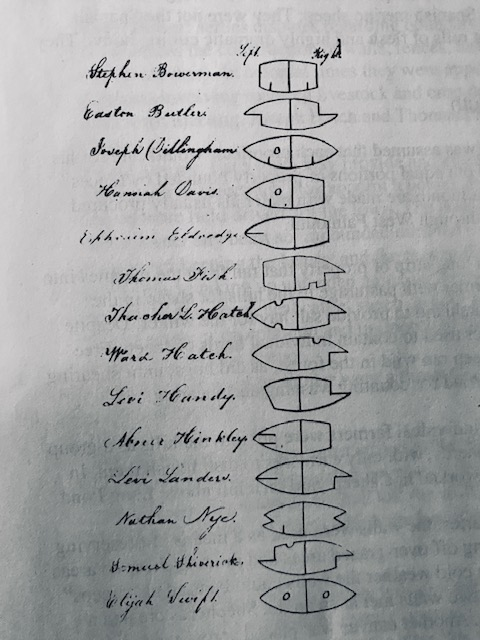 Left. Right
Stephen Bowerman.
Easton Butler.
Joseph Dillingham
Hannah Davis.
Ephraim Eldredge
Thomas Fish.
Thacher L. Hatch
Ward Hatch.
Levi Handy.
Abner Hinkley.
Levi Landers.
Nathan Nye.
Shiverick.
Elijah Swift.